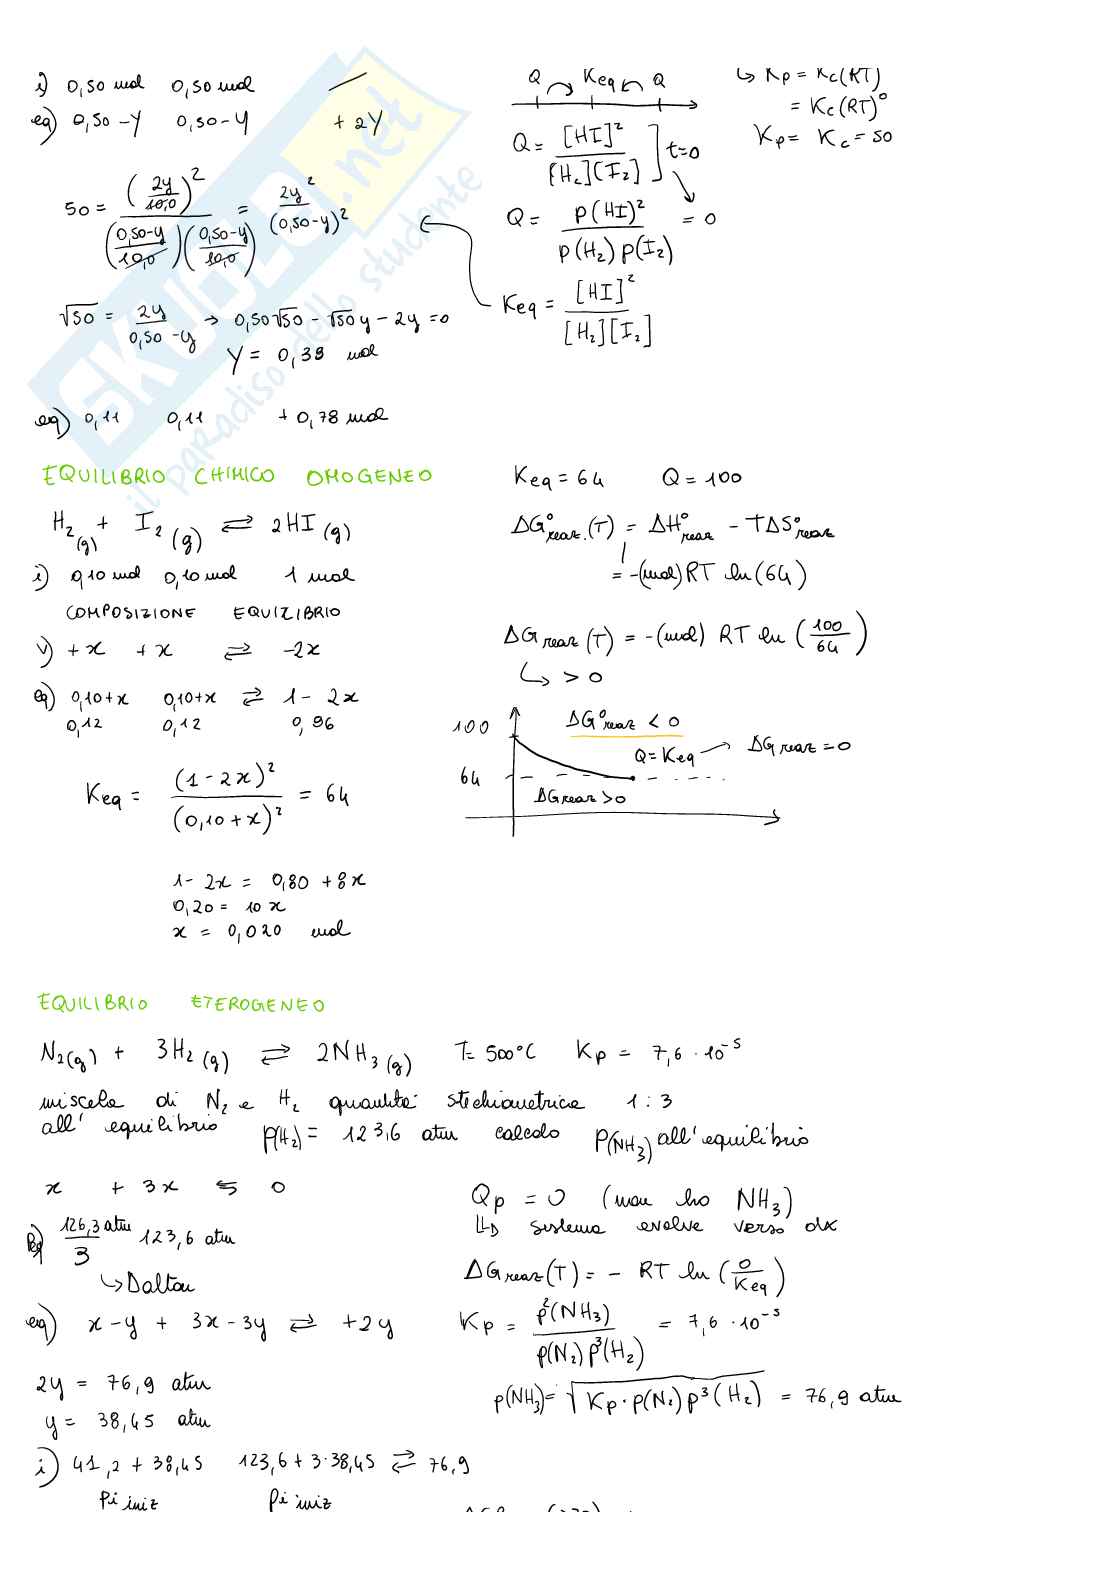 i) 0,50 mol 0,50 mol /
eq) 0,50-y 0,50-y +2y
50 = (2y/10,0)² / (0,50-y/10,0)(0,50-y/10,0) = 2y²/(0,50-y)²
√50 = 2y/0,50-y → 0,50√50 - √50y - 2y = 0
y = 0,39 mol
eq) 0,11 0,11 +0,78 mol
Q Keq Q
Q = [HI]²/[H₂][I₂] ] t=0
Q = p(HI)²/p(H₂)p(I₂) = 0
Keq = [HI]²/[H₂][I₂]
↳ Kp = Kc(RT)
= Kc(RT)⁰
Kp = Kc = 50
SKUOLA.net
il paradiso dello studente
EQUILIBRIO CHIMICO OMOGENEO
H₂(g) + I₂(g) ⇌ 2HI(g)
i) 0,10 mol 0,10 mol 1 mol
COMPOSIZIONE EQUILIBRIO
v) +x +x ⇌ -2x
eq) 0,10+x 0,10+x ⇌ 1-2x
0,12 0,12 0,96
Keq = (1-2x)²/(0,10+x)² = 64
1-2x = 0,80 + 8x
0,20 = 10x
x = 0,020 mol
Keq = 64 Q = 100
ΔG°reaz.(T) = ΔH°reaz - TΔS°reaz
= -(mol)RT ln(64)
ΔGreaz(T) = -(mol) RT ln(100/64)
↳ > 0
100 ΔG°reaz < 0
Q = Keq → ΔGreaz = 0
64
ΔGreaz > 0
EQUILIBRIO ETEROGENEO
N₂(g) + 3H₂(g) ⇌ 2NH₃(g) T = 500°C Kp = 7,6·10⁻⁵
miscela di N₂ e H₂ quantita' stechiometrica 1:3
all'equilibrio p(H₂) = 123,6 atm calcolo P(NH₃) all'equilibrio
x + 3x ⇆ 0
Peq) 126,3 atm/3 123,6 atm
↳ Dalton
eq) x-y + 3x-3y ⇌ +2y
2y = 76,9 atm
y = 38,45 atm
i) 41,2 + 38,45 123,6 + 3·38,45 ⇌ 76,9
Pi iniz Pi iniz
Qp = 0 (non ho NH₃)
↳ sistema evolve verso dx
ΔGreaz(T) = - RT ln(0/Keq)
Kp = p²(NH₃)/p(N₂)p³(H₂) = 7,6·10⁻⁵
p(NH₃) = √Kp·p(N₂)p³(H₂) = 76,9 atm